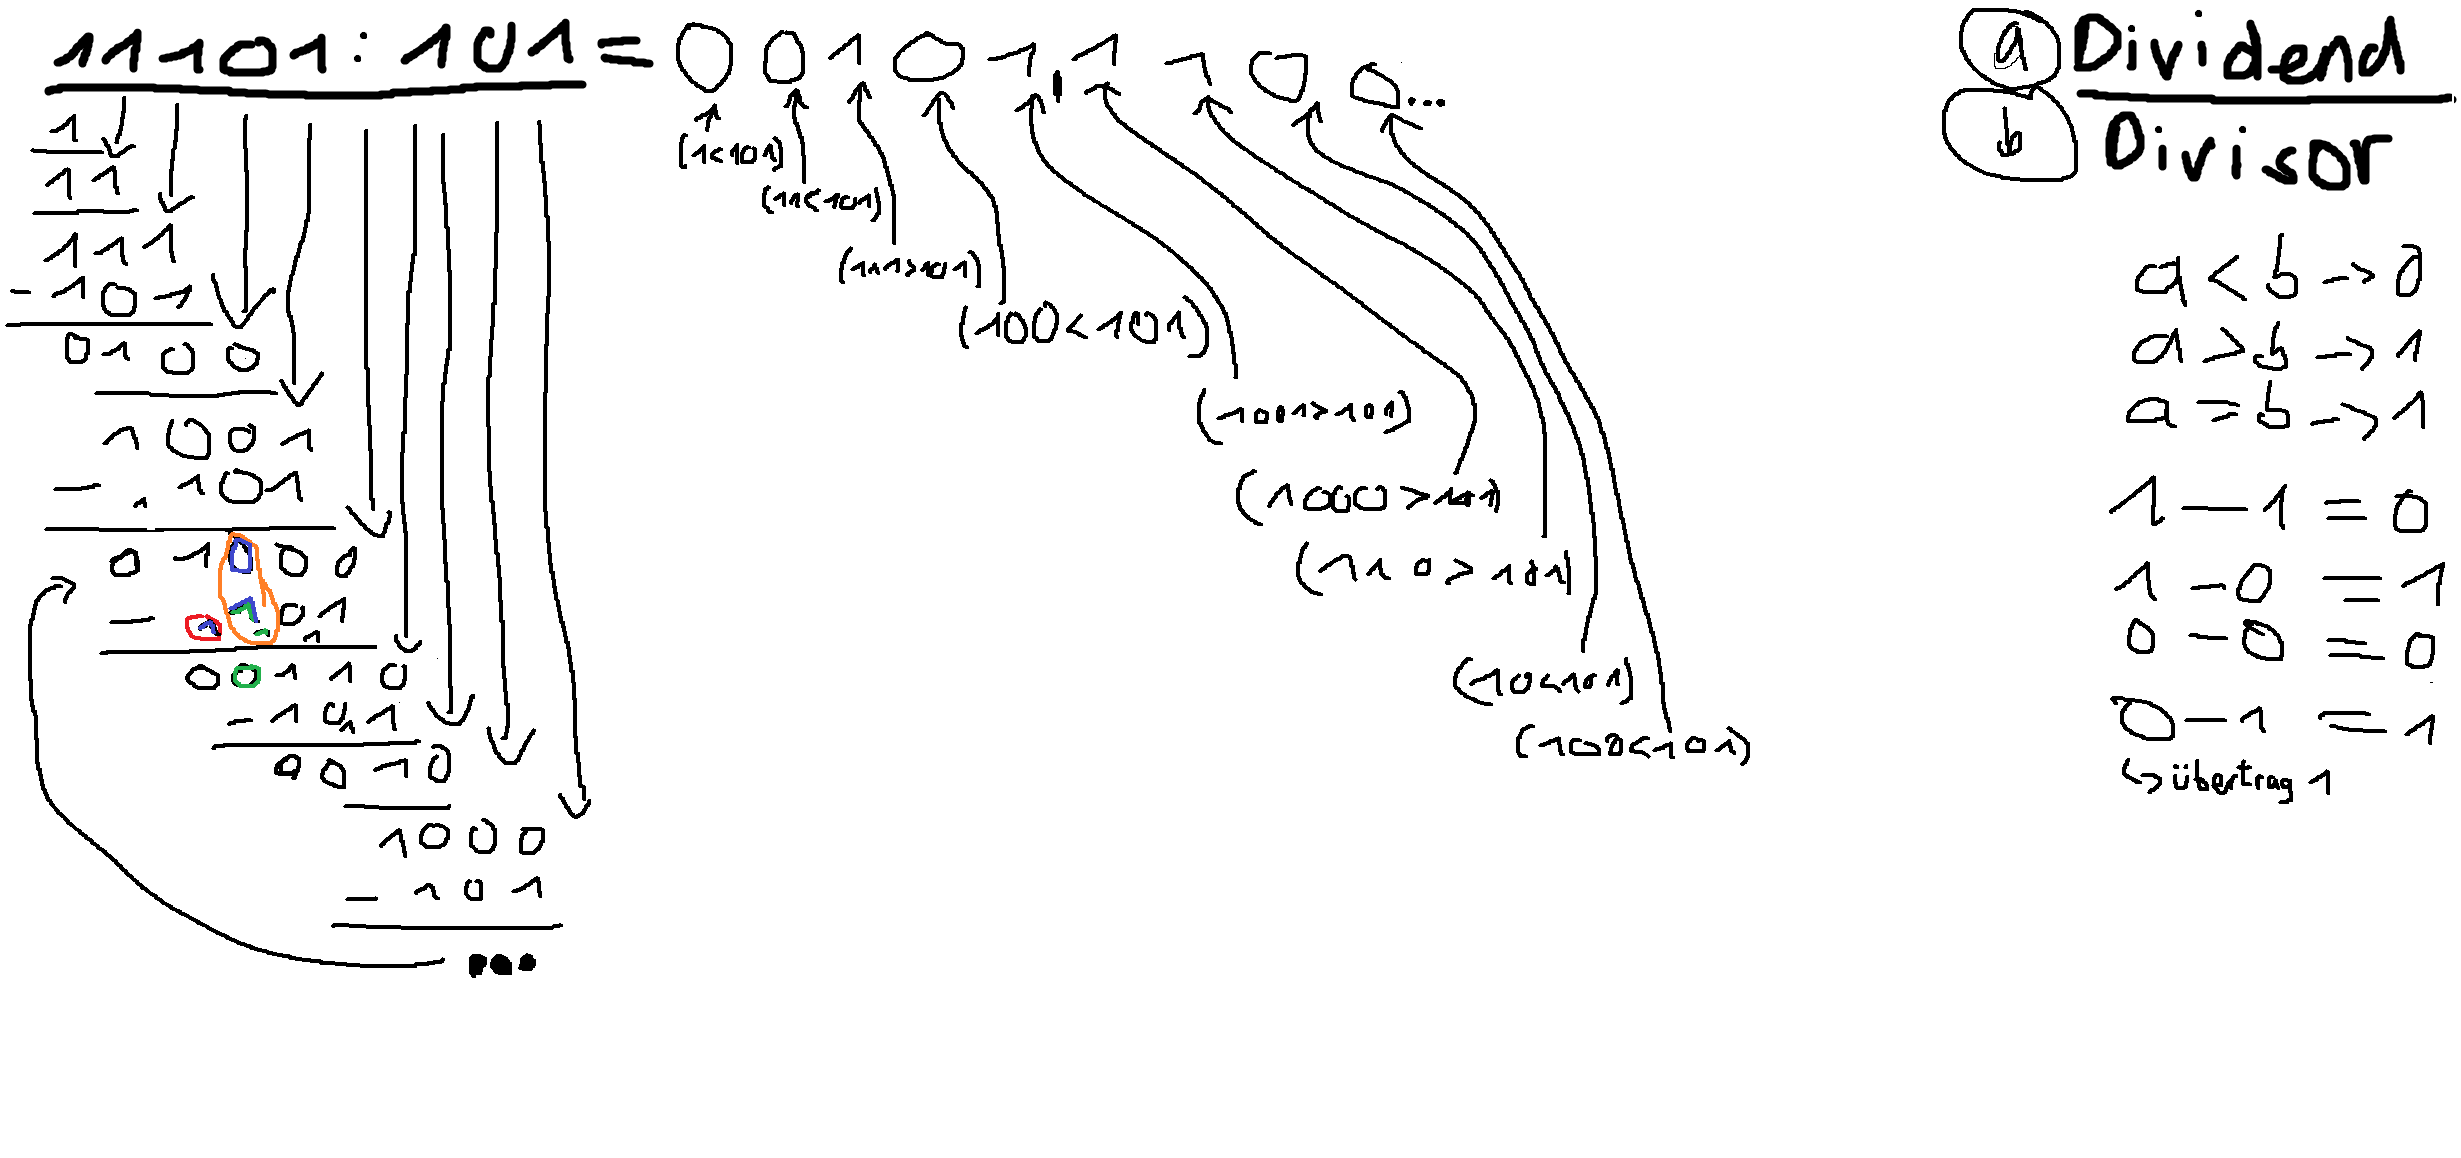 11101:101=00101,1100...
1
11
111
-101
0100
1001
-101
1
01000
-101
1 1 1
00110
-101
1
0010
1000
-101
...
(1<101)
(11<101)
(111>101)
(100<101)
(1001>101)
(1000>101)
(110>101)
(10<101)
(100<101)
a Dividend
b Divisor
a<b->0
a>b->1
a=b->1
1-1=0
1-0=1
0-0=0
0-1=1
↳ übertrag 1